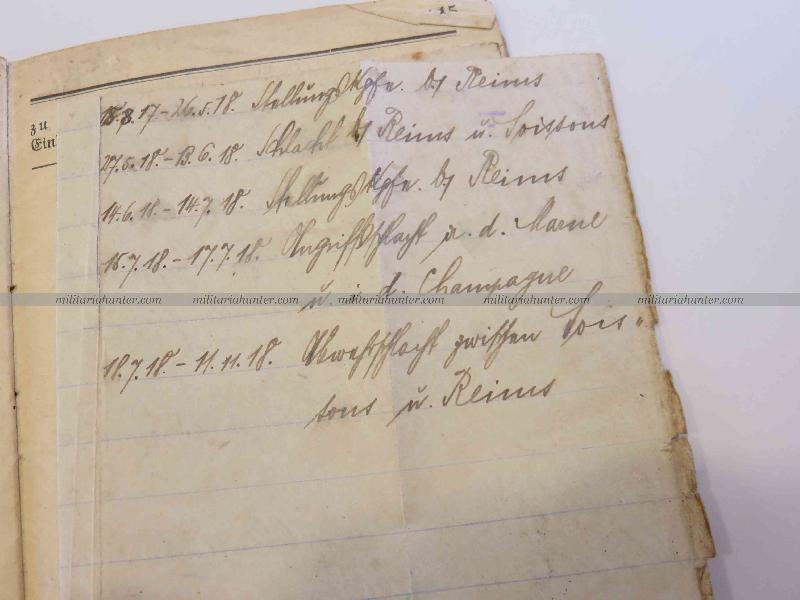 15
zu
Ein
15.8.17.-26.5.18. Stellungskpfe. b/ Reims
27.5.18.-13.6.18. Schlacht b/ Reims u. Soissons
14.6.18.-14.7.18. Stellungskpfe. b/ Reims
15.7.18.-17.7.18. Angriffsschlacht a. d. Marne
u. i. d. Champagne
militariahunter.com militariahunter.com militariahunter.com militariahunter.com militariahunter.com militariahunter.com
18.7.18.-11.11.18. Abwehrschlacht zwischen Sois-
sons u. Reims